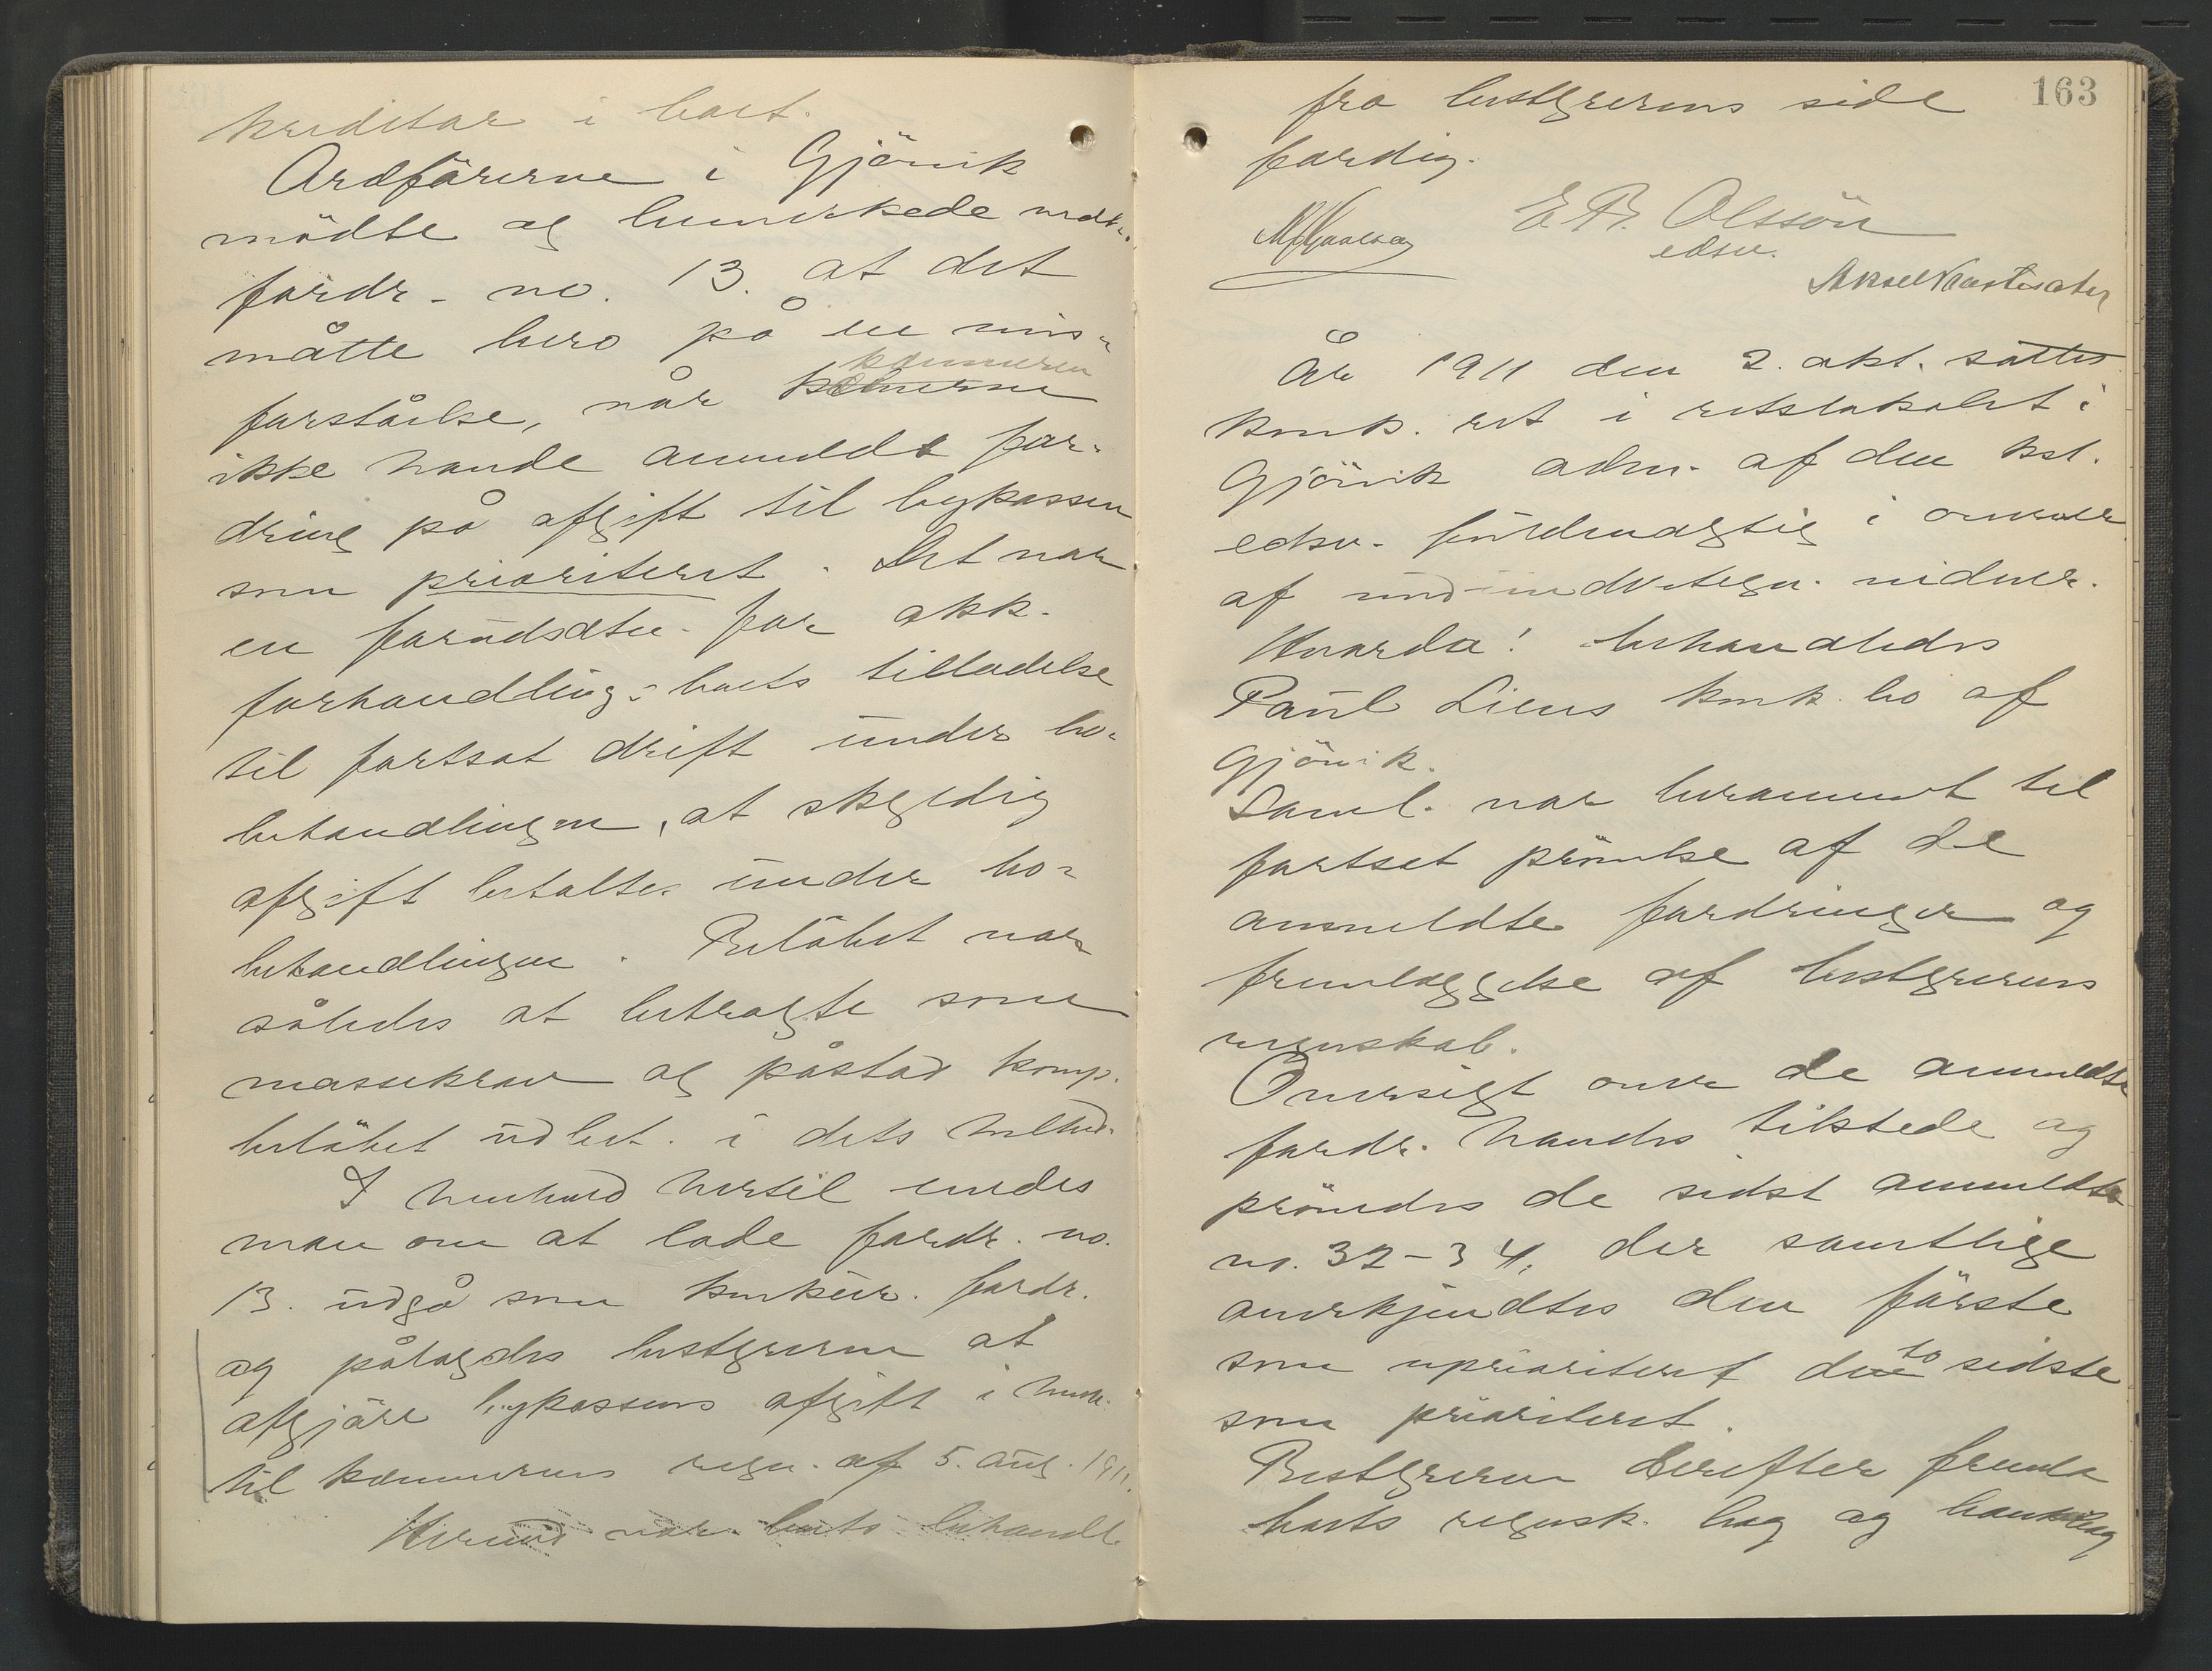 kreditor i boet.
Ordføreren i Gjøvik
mødte og bemerkede vedk.
fordr. no. 13. at det
måtte bero på en mis-
kæmneren
forståelse, når
ikke havde anmeldt for-
dring på afgift til bykassen
som prioriteret. Det var
en forudsætn. for akk.
forhandling: boets tilladelse
til fortsat drift under bo-
behandlingen, at skyldig
afgift betaltes under bo-
behandlingen. Beløbet var
således at betragte som
massekrav og påstod komp.
beløbet udbet. i dets helhed.
I henhold hertil enedes
man om at lade fordr. no.
13. udgå som konkur. fordr.
og pålagdes bestyreren at
afgjøre bykassens afgift i henh.
til kæmnerens regn. af 5. aug. 1911.
Hermed var boets behandl.
163
fra bestyrerens side
færdig.
E B. Olssön
edsv.
År 1911 den 2. okt. sattes
konk. ret i retslokalet i
Gjövik adm. af den kst.
edsv. fuldmægtig i overvær
af undertegn. vidner.
Hvorda! behandledes
Paul Liens konk. bo af
Gjövik.
Saml. var berammet til
fortsat prøvelse af de
anmeldte fordringer og
fremlæggelse af bestyrerens
regnskab.
Oversigt over de anmeldte
fordr. havdes tilstede og
prøvedes de sidst anmeldte
no. 32-34, der samtlige
anerkjendtes den første
som uprioriteret de to sidste
som prioriteret.
Bestyreren derefter freml.
boets regnsk. bog og bankbog